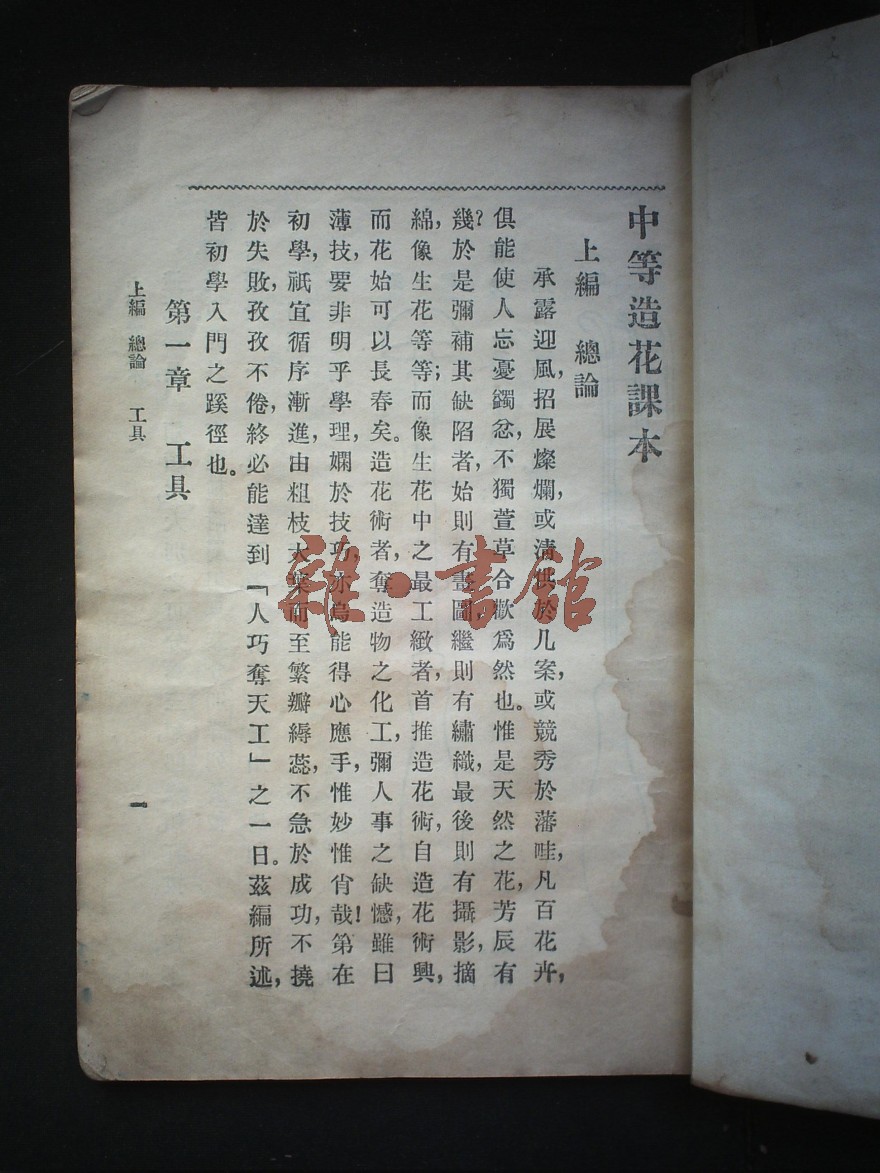 中等造花課本
上編 總論
承露迎風,招展燦爛,或清供於几案,或競秀於藩畦,凡百花卉,
俱能使人忘憂蠲忿,不獨萱草合歡爲然也。惟是天然之花,芳辰有
幾?於是彌補其缺陷者,始則有畫圖,繼則有繡織,最後則有攝影,摘
綿,像生花等等;而像生花中之最工緻者,首推造花術,自造花術興,
而花始可以長春矣。造花術者,奪造物之化工,彌人事之缺憾,雖曰
薄技,要非明乎學理,嫻於技巧,亦烏能得心應手,惟妙惟肖哉!第在
初學,祇宜循序漸進,由粗枝大葉而至繁瓣縟蕊,不急於成功,不撓
於失敗,孜孜不倦,終必能達到「人巧奪天工」之一日。茲編所述,
皆初學入門之蹊徑也。
第一章 工具
上編 總論 工具
一
雜·書館